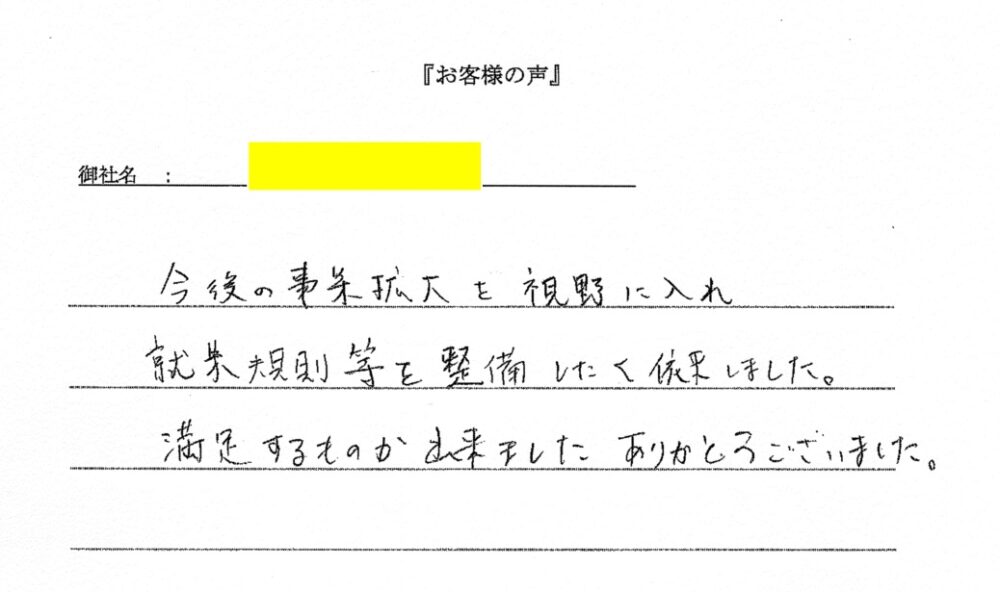 『お客様の声』
御社名 :
今後の事業拡大を視野に入れ
就業規則等を整備したく依頼しました。
満足するものが出来ましたありがとうございました。